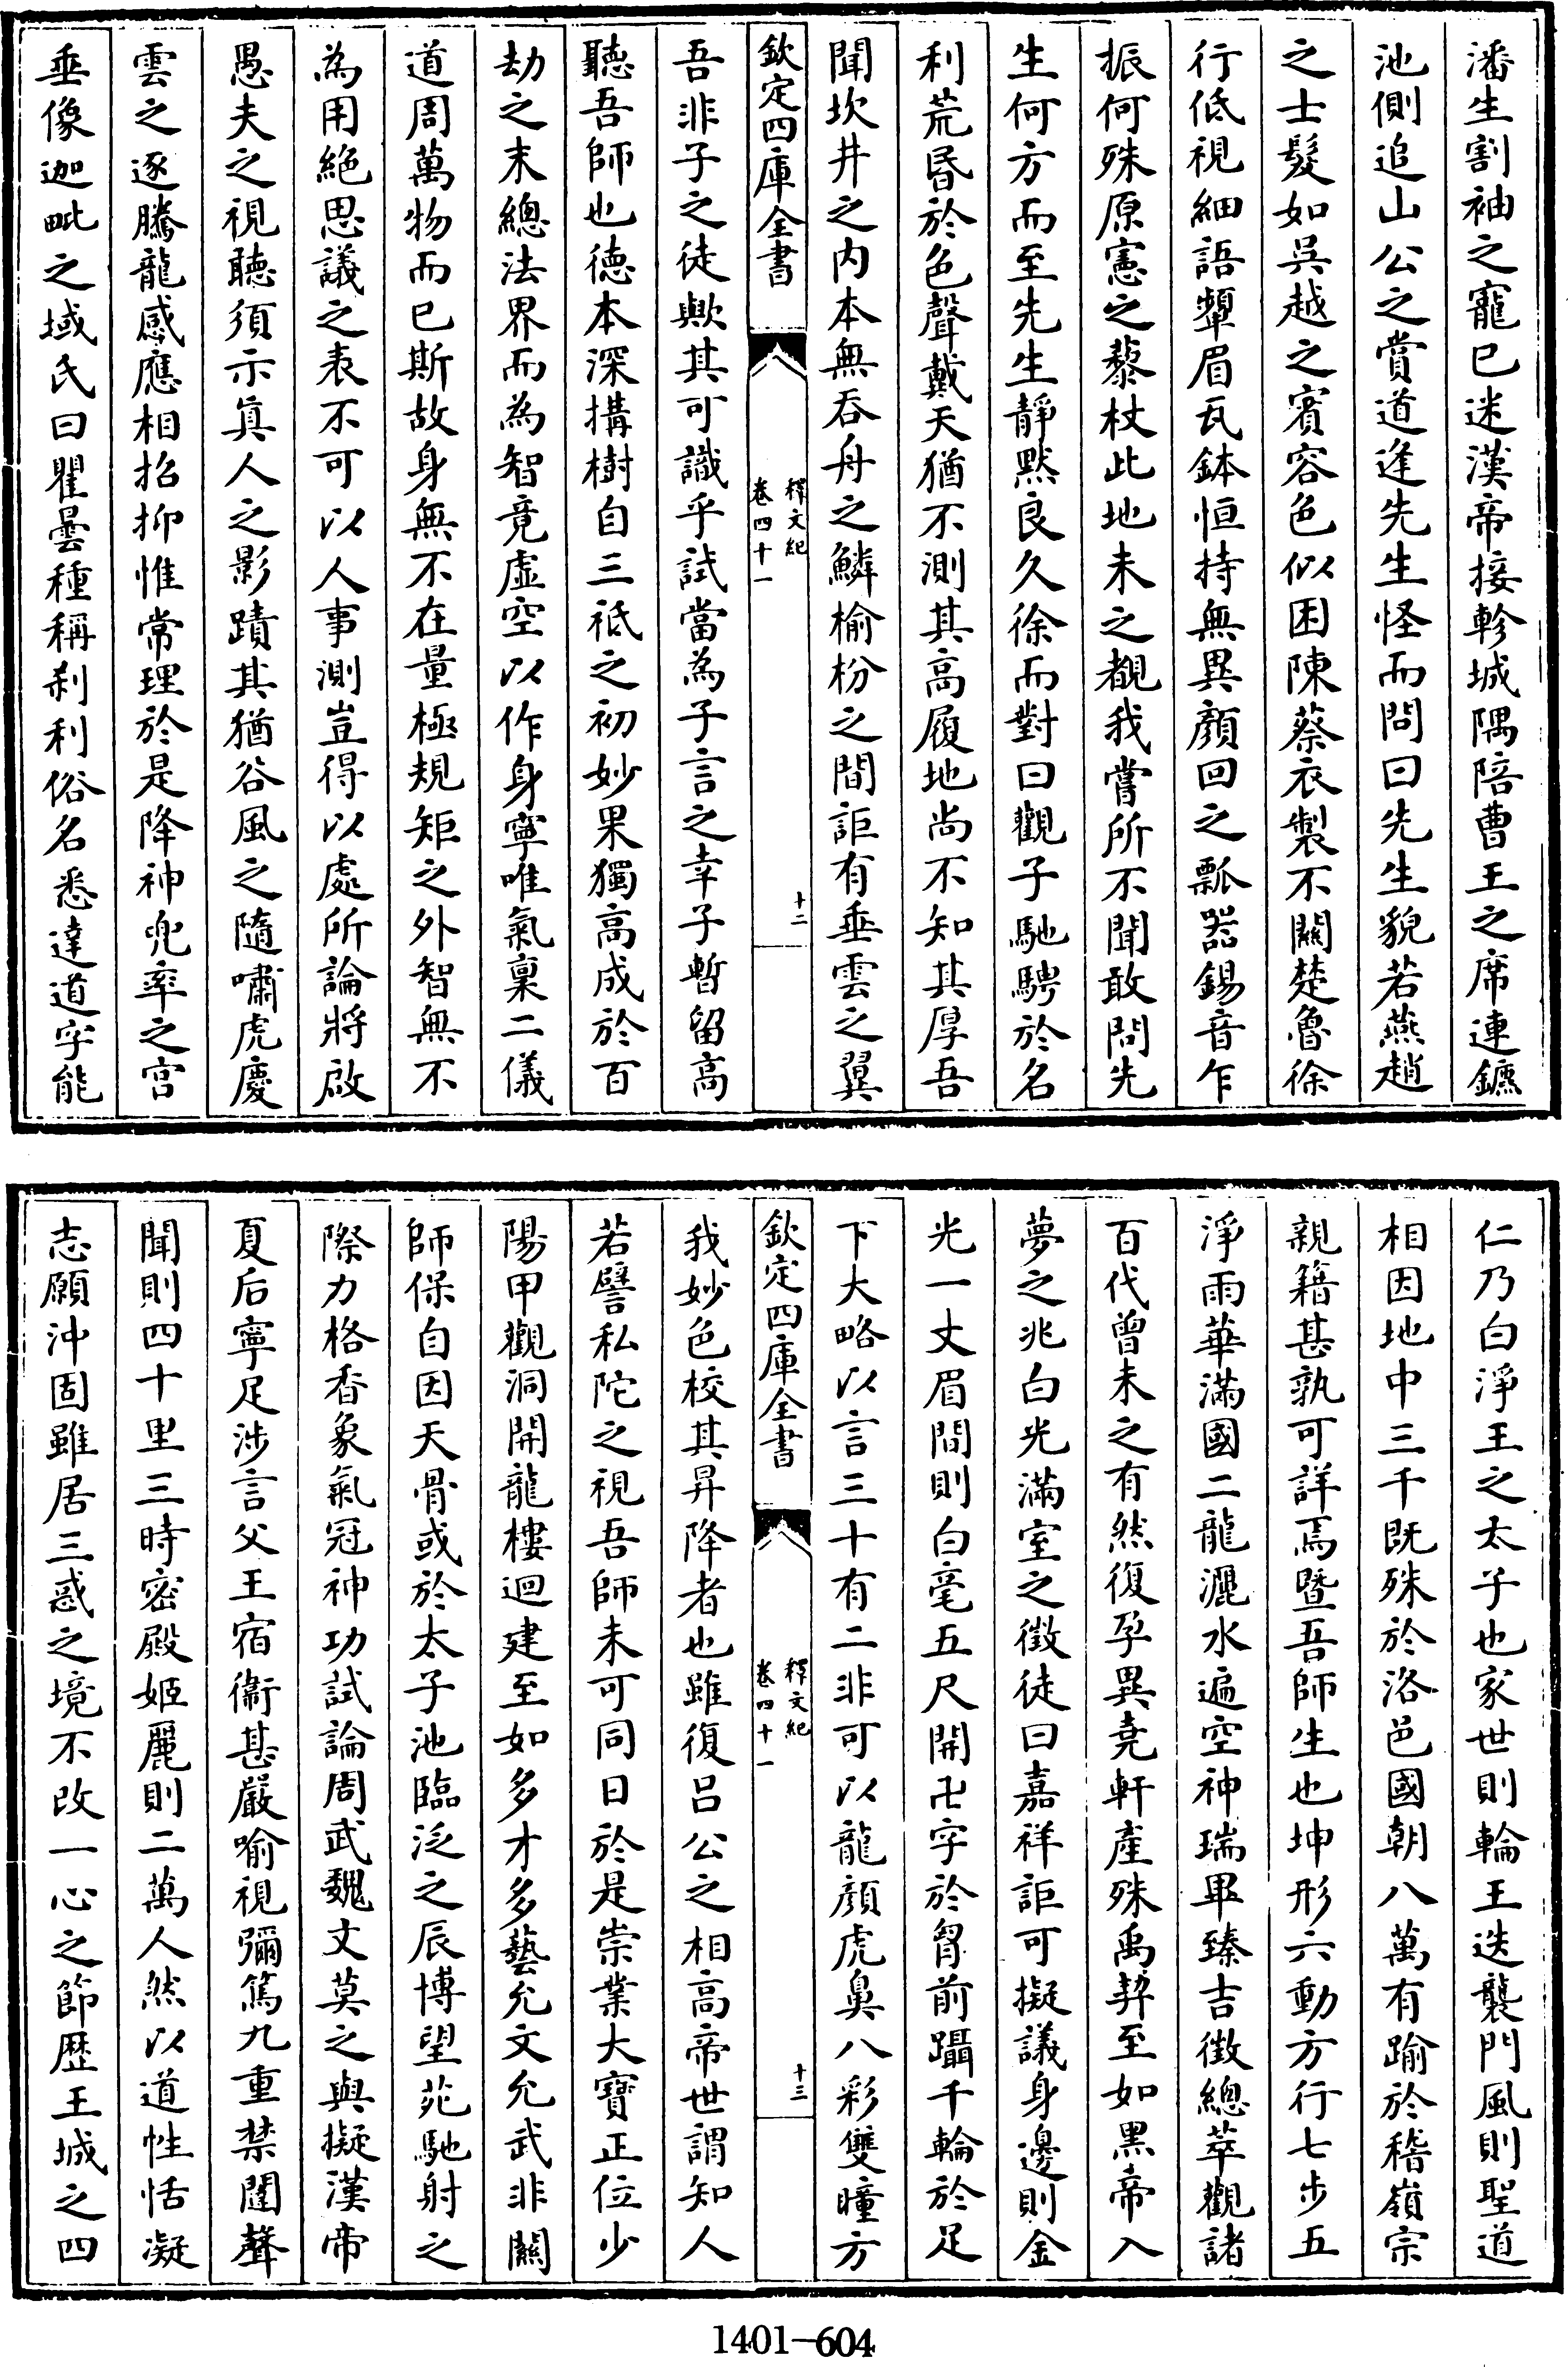 潘生割袖之寵已迷漢帝接軫城隅陪曹王之席連鑣
池側追山公之賞道逢先生怪而問曰先生貌若燕趙
之士髮如吳越之賓容色似困陳蔡衣製不關楚魯徐
行低視細語顰眉瓦鉢恒持無異顏回之瓢器錫音乍
振何殊原憲之藜杖此地未之覩我嘗所不聞敢問先
生何方而至先生靜黙良久徐而對曰觀子馳騁於名
利荒昬於色聲戴天猶不測其高履地尚不知其厚吾
聞坎井之内本無吞舟之鱗榆枌之間詎有垂雲之翼
欽定四庫全書
釋文紀
卷四十一
十二
吾非子之徒歟其可識乎試當為子言之幸子暫留高
聽吾師也德本深搆樹自三祗之初妙果獨高成於百
劫之末總法界而為智竟虛空以作身寧唯氣稟二儀
道周萬物而已斯故身無不在量極規矩之外智無不
為用絕思議之表不可以人事測豈得以處所論將啟
愚夫之視聽須示真人之影蹟其猶谷風之隨嘯虎慶
雲之逐騰龍感應相招抑惟常理於是降神兜率之宫
垂像迦毗之域氏曰瞿曇種稱刹利俗名悉達道字能
仁乃白淨王之太子也家世則輪王迭襲門風則聖道
相因地中三千既殊於洛邑國朝八萬有踰於稽嶺宗
親籍甚孰可詳焉暨吾師生也坤形六動方行七步五
淨雨華滿國二龍灑水遍空神瑞畢臻吉徵總萃觀諸
百代曾未之有然復孕異堯軒產殊禹契至如黑帝入
夢之兆白光滿室之徴徒曰嘉祥詎可擬議身邊則金
光一丈眉間則白毫五尺開卍字於胷前躡千輪於足
下大略以言三十有二非可以龍顏虎鼻八彩雙瞳方
欽定四庫全書
釋文紀
卷四十一
十三
我妙色校其昇降者也雖復吕公之相高帝世謂知人
若譬私陀之視吾師未可同日於是崇業大寶正位少
陽甲觀洞開龍樓迴建至如多才多藝允文允武非關
師保自因天骨或於太子池臨泛之辰博望苑馳射之
際力格香象氣冠神功試論周武魏文莫之與擬漢帝
夏后寧足涉言父王宿衞甚嚴喻視彌篤九重禁闥聲
聞則四十里三時密殿姬麗則二萬人然以道性恬凝
志願沖固雖居三惑之境不改一心之節歷王城之四
1401—604